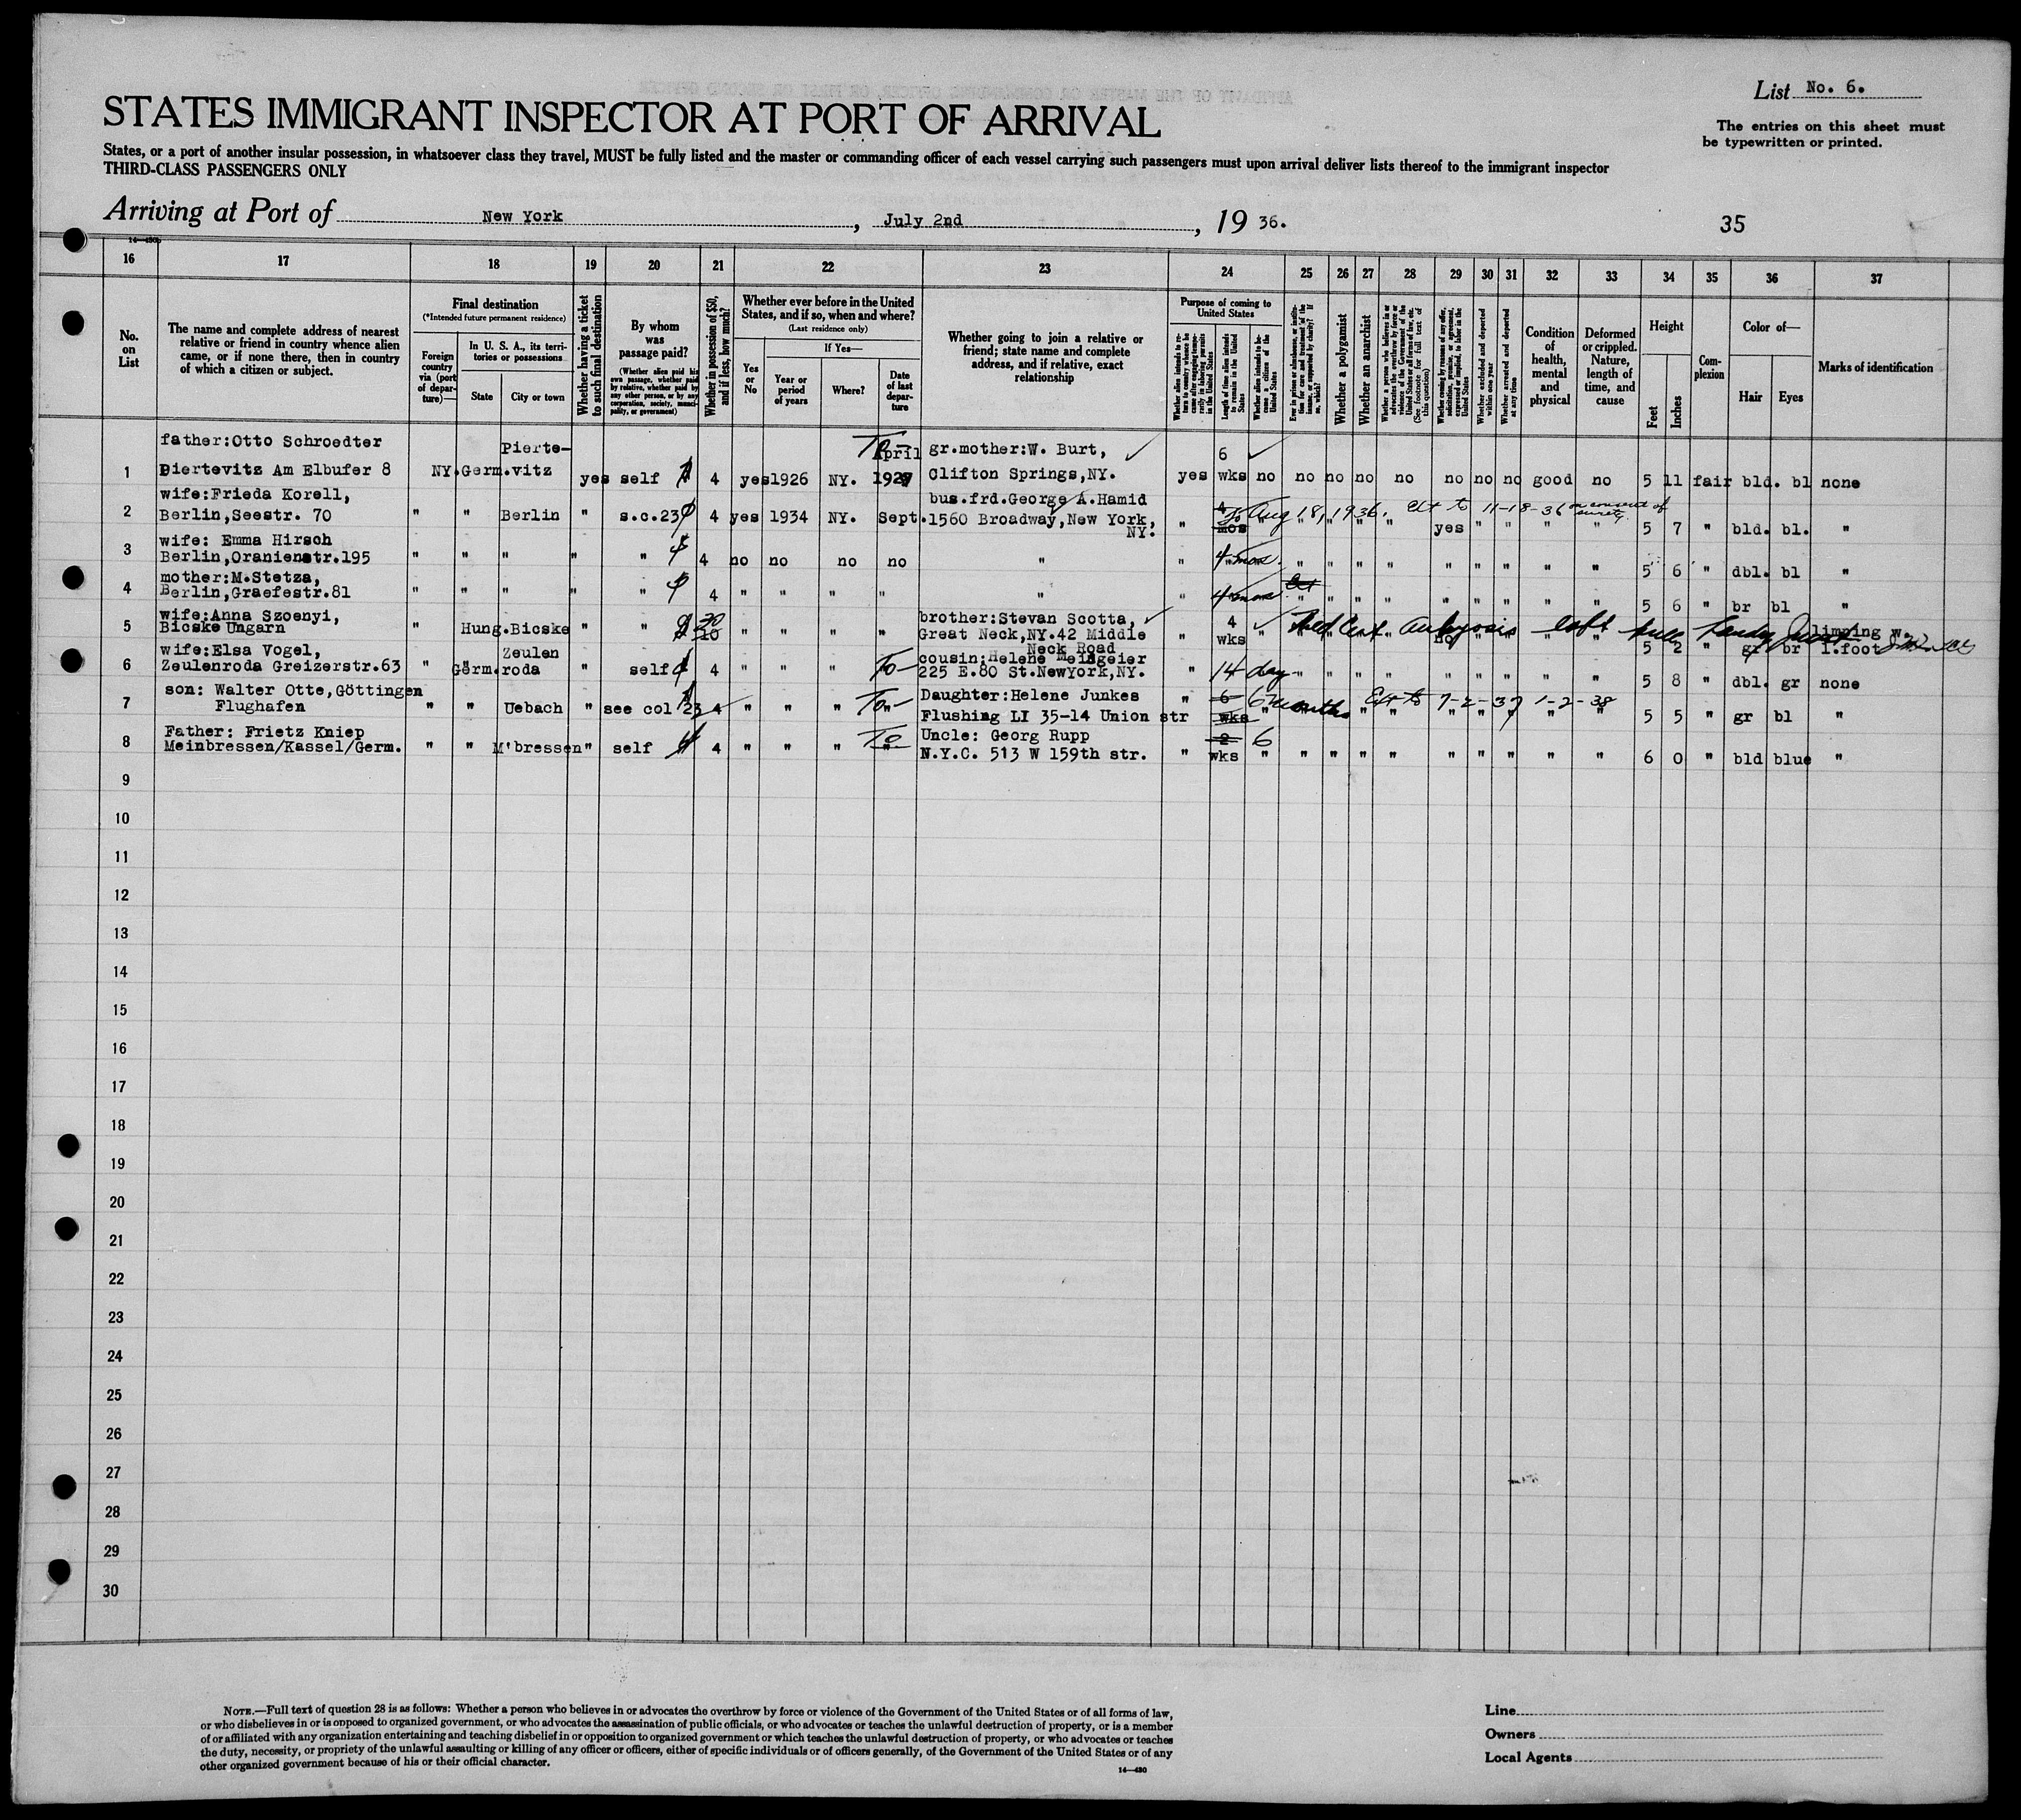 List No. 6.
STATES IMMIGRANT INSPECTOR AT PORT OF ARRIVAL
The entries on this sheet must
be typewritten or printed.
States, or a port of another insular possession, in whatsoever class they travel, MUST be fully listed and the master or commanding officer of each vessel carrying such passengers must upon arrival deliver lists thereof to the immigrant inspector
THIRD-CLASS PASSENGERS ONLY
Arriving at Port of New York, July 2nd, 19 36. 35
16 17 18 19 20 21 22 23 24 25 26 27 28 29 30 31 32 33 34 35 36 37
No. on List
The name and complete address of nearest
relative or friend in country whence alien
came, or if none there, then in country
of which a citizen or subject.
Final destination
(*Intended future permanent residence)
Foreign country via (port of departure)—
In U. S. A., its territories or possessions
State City or town
Whether having a ticket to such final destination
By whom was passage paid?
(Whether alien paid his own passage, whether paid by relative, whether paid by any other person, or by any corporation, society, municipality, or government)
Whether in possession of $50, and if less, how much?
Whether ever before in the United
States, and if so, when and where?
(Last residence only)
Yes or No
If Yes—
Year or period of years
Where?
Date of last departure
Whether going to join a relative or
friend; state name and complete
address, and if relative, exact
relationship
Purpose of coming to United States
Length of time alien intends to remain in the United States
Whether alien intends to become a citizen of the United States
Whether a polygamist
Whether an anarchist
Whether excluded and deported within one year
Whether arrested and deported at any time
Condition of health, mental and physical
Deformed or crippled. Nature, length of time, and cause
Height
Feet Inches
Complexion
Color of—
Hair Eyes
Marks of identification
father:Otto Schroedter Pierte- April gr.mother:W. Burt, 6
1 Piertevitz Am Elbufer 8 NY.Germ.vitz yes self 4 yes 1926 NY. 1927 Clifton Springs,NY. yes wks no no no no no no no no good no 5 11 fair bld. bl none
wife:Frieda Korell, bus.frd.George A.Hamid
2 Berlin,Seestr. 70 " " Berlin " s.c.23 4 yes 1934 NY. Sept. 1560 Broadway,New York, NY. " mos yes " " " " 5 7 " bld. bl. "
To Aug 18, 1936. Ext to 11-18-36
wife: Emma Hirsch
3 Berlin,Oranienstr.195 " " " " " 4 no no no no " " 4 mos. " " " " " " " " " 5 6 " dbl. bl "
mother:M.Stetza,
4 Berlin,Graefestr.81 " " " " 4 " " " " " " 4 mos " " " " " " " " 5 6 " br bl "
wife:Anna Szoenyi, brother:Stevan Scotta, 4
5 Bicske Ungarn " Hung.Bicske " " 30 10 " " " " Great Neck,NY.42 Middle Neck Road " wks " no 5 2 " gr br limping w. l.foot
Med Cert left
wife:Elsa Vogel, Zeulen cousin:Helene Meisgeier
6 Zeulenroda Greizerstr.63 " " Germ.roda self 4 " " " To— 225 E.80 St.NewYork,NY. " 14 days " " " " " " " " " 5 8 " dbl. gr none
son: Walter Otte,Göttingen Daughter:Helene Junkes
7 Flughafen " " Uebach " see col 23 4 " " " To— Flushing LI 35-14 Union str " 6 wks 6 months Ext to 7-2-37 1-2-38 5 5 " gr bl "
Father: Frietz Kniep Uncle: Georg Rupp 2 6
8 Meinbressen/Kassel/Germ. " " M'bressen " self 4 " " " To N.Y.C. 513 W 159th str. " wks " " " " " " " " " " 6 0 " bld blue "
9
10
11
12
13
14
15
16
17
18
19
20
21
22
23
24
25
26
27
28
29
30
NOTE.—Full text of question 28 is as follows: Whether a person who believes in or advocates the overthrow by force or violence of the Government of the United States or of all forms of law,
or who disbelieves in or is opposed to organized government, or who advocates the assassination of public officials, or who advocates or teaches the unlawful destruction of property, or is a member
of or affiliated with any organization entertaining and teaching disbelief in or opposition to organized government or which teaches the unlawful destruction of property, or who advocates or teaches
the duty, necessity, or propriety of the unlawful assaulting or killing of any officer or officers, either of specific individuals or of officers generally, of the Government of the United States or of any
other organized government because of his or their official character.
14—430
Line
Owners
Local Agents